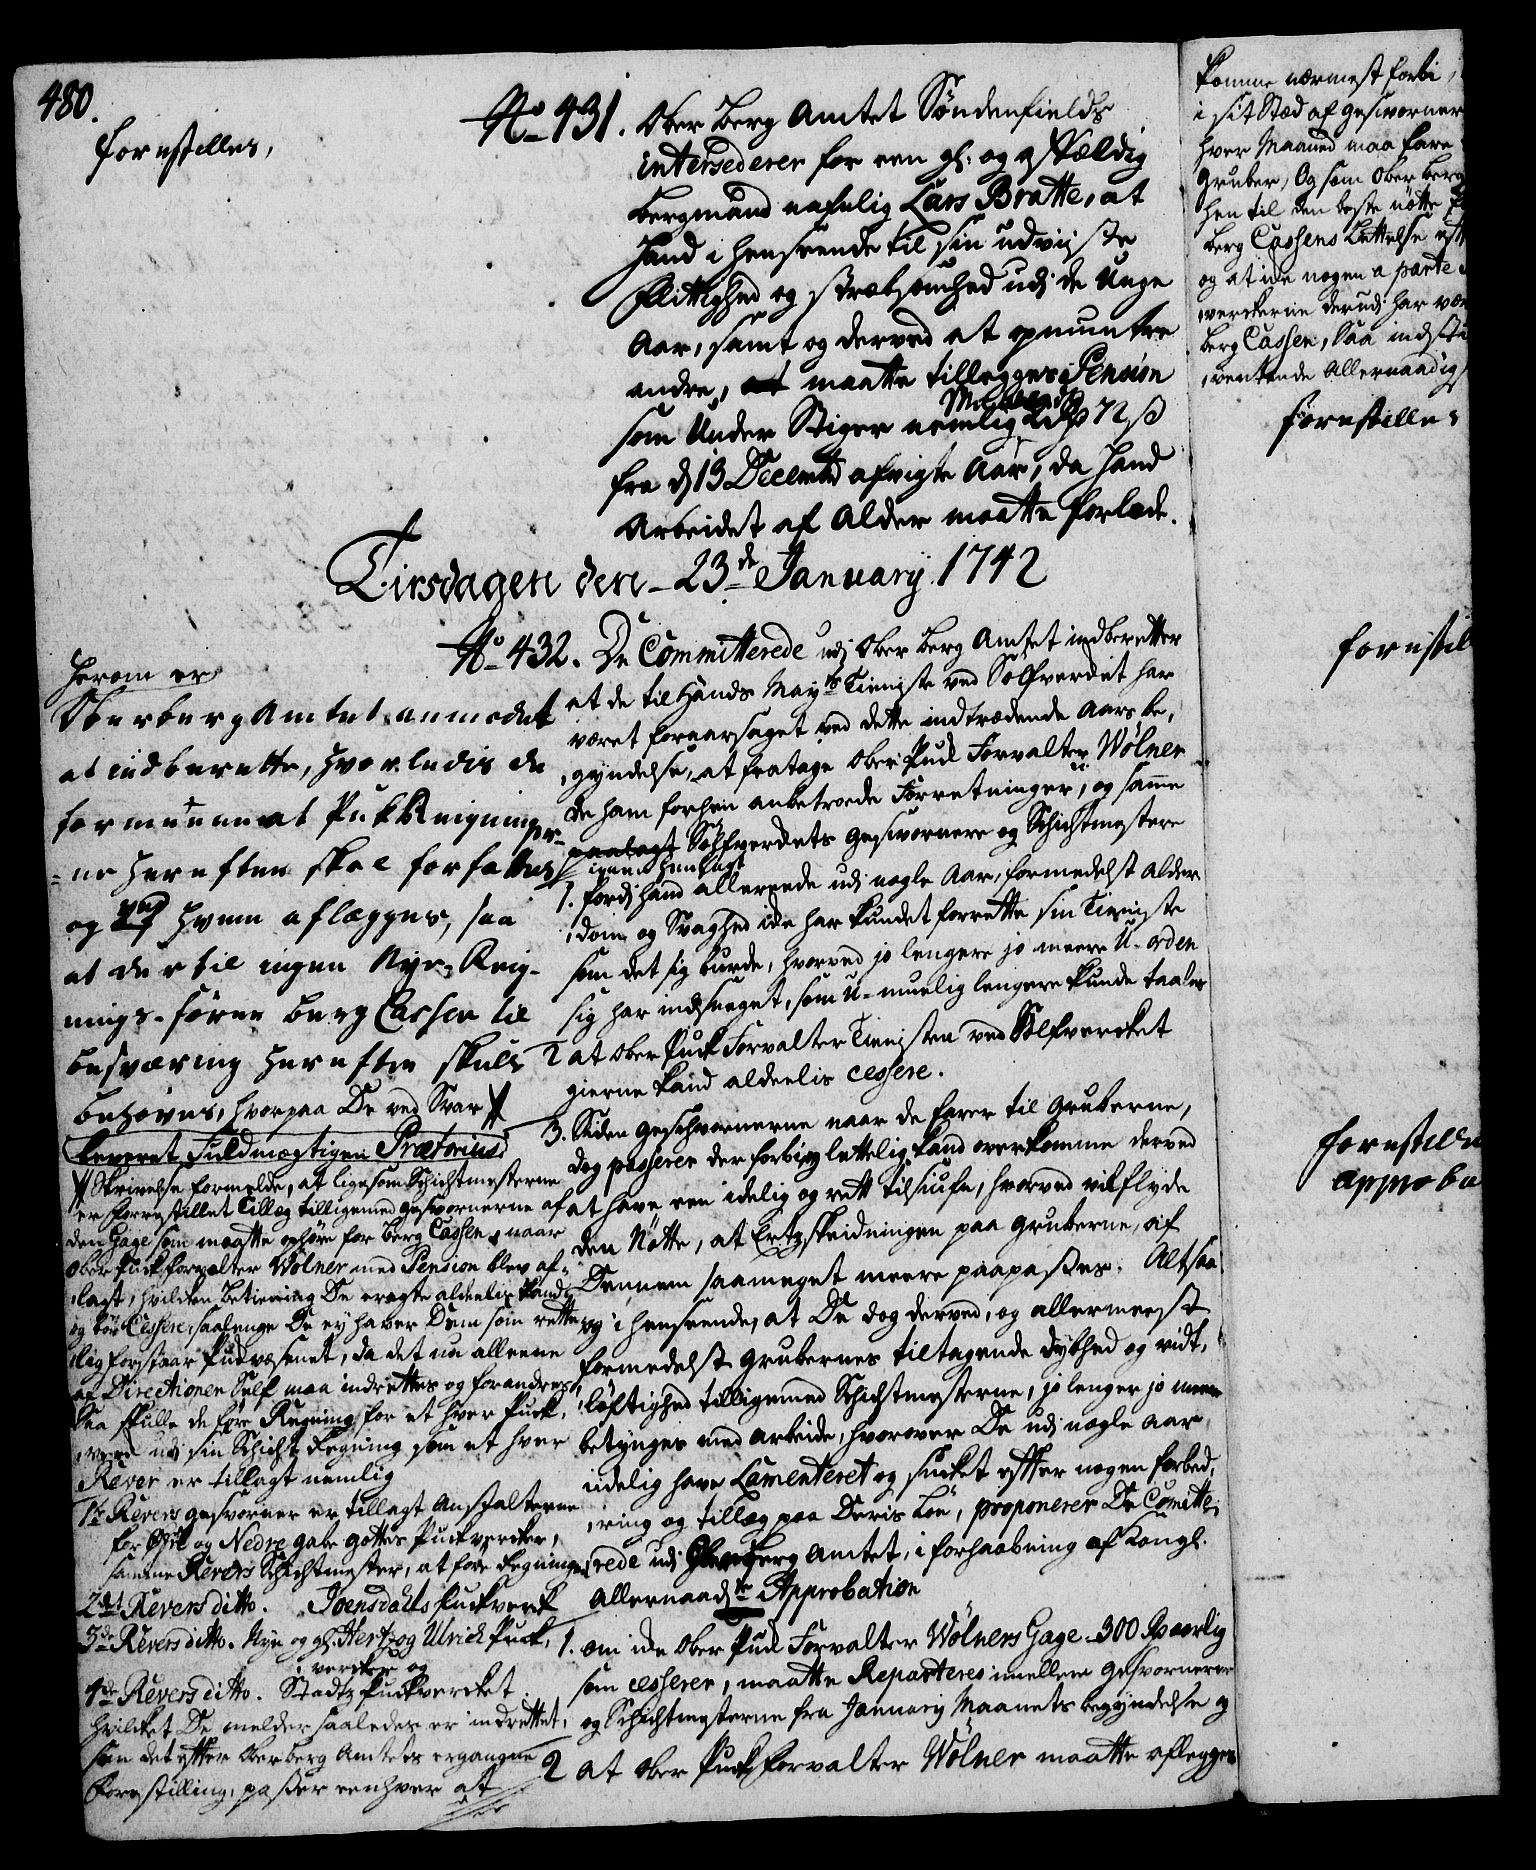 480.
forestilles,
No 431. Ober Berg Amtet Søndenfields
intersederer for een gl: og
Bergmand nafnlig Lars Bratte, at
hand i henseende til sin udviiste
flittighed og stræbsomhed udj de Unge
Aar, samt og derved at opmuntre
andre, maatte tillegges Pension
som Under Stiger nemlig Maanedl: 2 rdr 72 ß
fra d 13 Decembr afvigte Aar, da hand
Arbeidet af Alder maatte forlade.
Tirsdagen den 23de January 1742
No 432. De Committerede udj Ober Berg Amtet indberetter
at de til Hands Mayts Tieniste ved Sølfverket har
været foraarsaget ved dette indtrædende Aars be,
gyndelse, at fratage Ober Puck Forvalter Wölner
de ham forhen anbetroede Forretninger, og samme
paalagt Sølfverkets Gesvornere og Schichtmestere
igien henlagt
1. fordj hand allereede udj nogle Aar, formedelst Alder
dom og Svaghed icke har kundet forrette sin Tieniste
som det sig burde, hvorved jo lengere jo meere U-orden
sig har indsneget, som U-muelig lengere kunde taales
2 at Ober Puck Forvalter Tienisten ved Sølfverket
gierne kand aldeelis cessere.
3. Siden Geschvornerne naar de farer til Gruberne,
dog passerer der forbi og lettelig kand overkomme derved
at have een idelig og rett tilsiufn, hvorved vil flyde
den Nøtte, at Ertzskeidningen paa Gruberne, af
Dennem saameget meere paapasses. Altsaa
og i henseende, at De dog derved, og allermeest
formedelst Grubernes tiltagende dybhed og vidt,
løftighed tilligemed Schichtmesterne, jo lenger jo meere
betynges med arbeide, hvorover De udj nogle Aar
idelig have Lamenteret og sucket efter nogen forbed,
ring og tillæg paa Deris Løn, proponerer De Comitte,
rede udj Ober Berg Amtet, i forhaabning af Kongl.
Allernaadste Approbation
1. om icke Ober Puck Forvalter Wölners Gage 300 Rd aarlig
som cesserer, maatte Reparteres imellem Gesvornerne
og Schichtmesterne fra January Maanets begyndelse og
2 at Ober Puck Forvalter Wölner maatte aflegges
Herom er
Oberberg Amtet anmodet
at indberette, hvorledis de
formeener at Puk Reigninger-
ne herefter skal forfattes
og ved hvem aflægges, saa
at der til ingen Nye Reig-
nings-fører Berg Cassen til
besværing herefter skulle
behøves, hvorpaa De ved Svar
leveret Fuldmægtigen Prætorius
Skrivelse formelde, at ligesom Schichtmesterne
er forrestillet Tillæg tilligemed Gesvornerne af
den Gage som maatte ophøre for Berg Cassen, naar
Ober Puckforvalter Wölner med Pension blev af-
lagt, hvilken betiening De eragte aldeelis kand
og bør Cessere, saalenge De ey haver Dem som rette,
lig forstaar Puckvæsenet, da det nu alleene
af Directionen Self maa indrettes og forandres,
Saa skulle de føre Regning for et hver Puck,
verk udj sin Schicht Regning som et hver
Rever er tillagt nemlig
1te Revers Gesvorner er tillagt Anstalterne
for Øfre og Nedre Gabe Gottes Puckvercker,
samme Revers Schichtmester, at føre Regningen
2det Revers ditto. Joensdahls Puckverk
3de Revers ditto. Nye og gl: Hertzog Ulrich Puck,
vercker og
4de Revers ditto. Stadtz Puckverket
hvilcket De melder saaledes er indrettet,
som det efter Ober Berg Amtets ergangne
forestilling, passer eenhver at
komme nærmest forbi,
i sit Stæd af Gesvorner
hver Maaned maa fare
Gruber, Og som Ober Berg
hen til den beste nøtte
Berg Cassens Lettelse
og at icke nogen a parte
verckerne derudj har
Berg Cassen, Saa
ventende Allernaadig
forestilles
forestil
forestill
approba